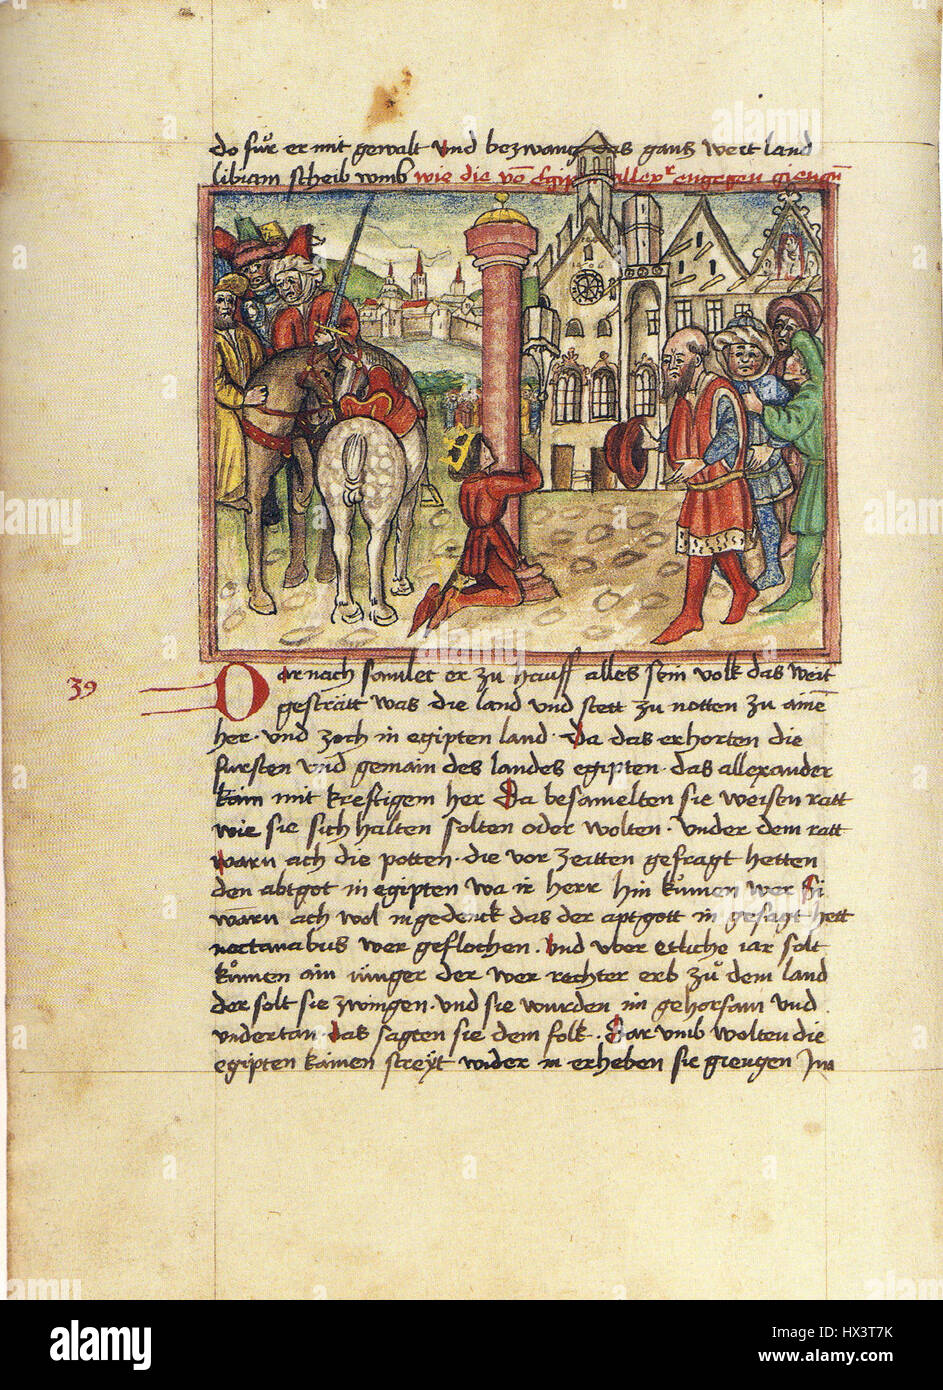 do fuͦr er mit gewalt Und bezwang das gantz weit land
libiam scheib vmb wie die võ Egip allexr engegen giengñ
39
Dar nach samlet er zu hauff alles sein volk das weit
gesträtt was die land und stett zu notten zu aine
her · und zoch in egipten land · Da das erhorten die
fursten und gemain des landes egipten · das allexander
kam mit kreftigem her Da besamelten sie weisen ratt
wie sie sich halten solten oder wolten · under dem ratt
warn ach die potten · die vor zeitten gefragt hetten
den abtgot in egipten wa ir herr hin kumen wer Si
warn ach wol ingedenck das der aptgott in gesagt hett
nectanabus wer geflochen · Und vber etliche iar solt
kumen ain iünger der wer rechter erb zuͦ dem land
der solt sie zwingen · und sie wurden im gehorsam und
undertan das sagten sie dem folk · Dar umb wolten die
egipten kainen streyt wider in erheben sie giengen Im
alamy
Image ID: HX3T7K
www.alamy.com